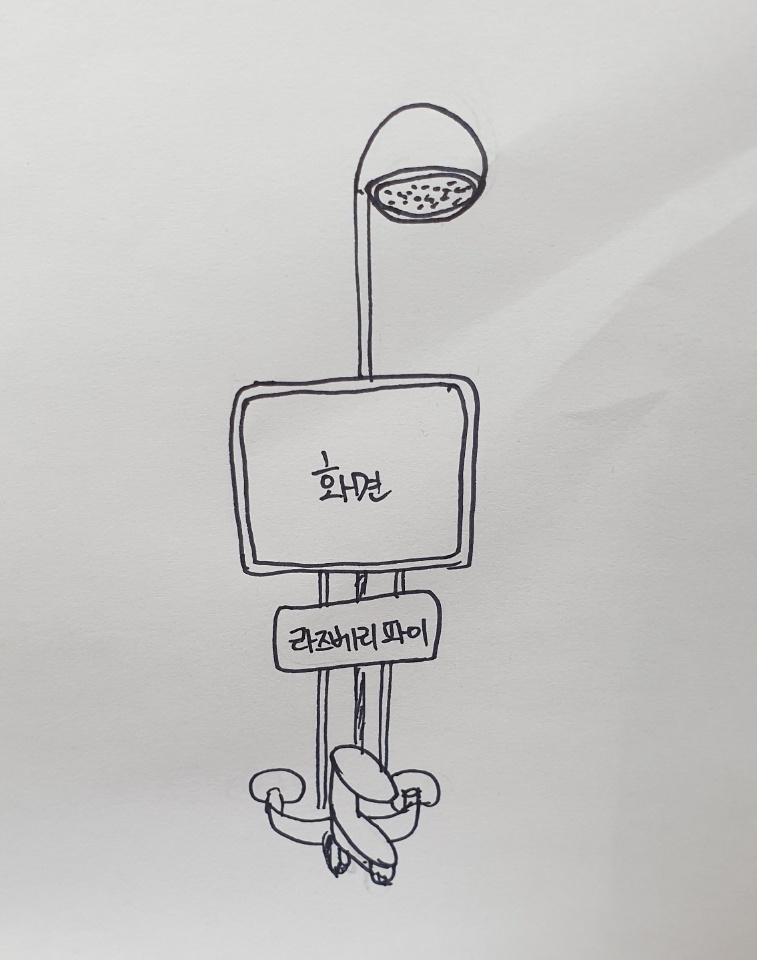 화면
라즈베리파이